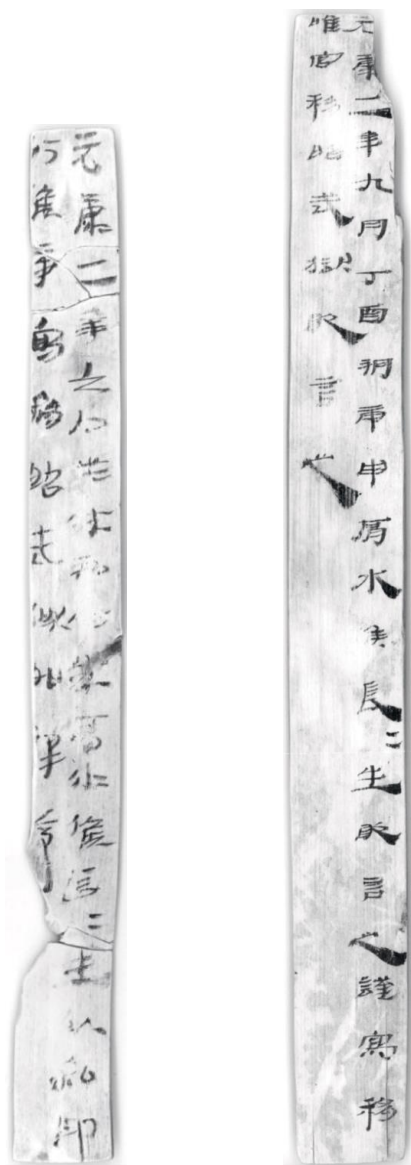 元康二年九月丁酉朔庚申肩水候長=生敢言之謹寫移
唯官移昭武獄敢言之
元康二年肩水候長=生以私印
行候事寫移昭武獄如律令